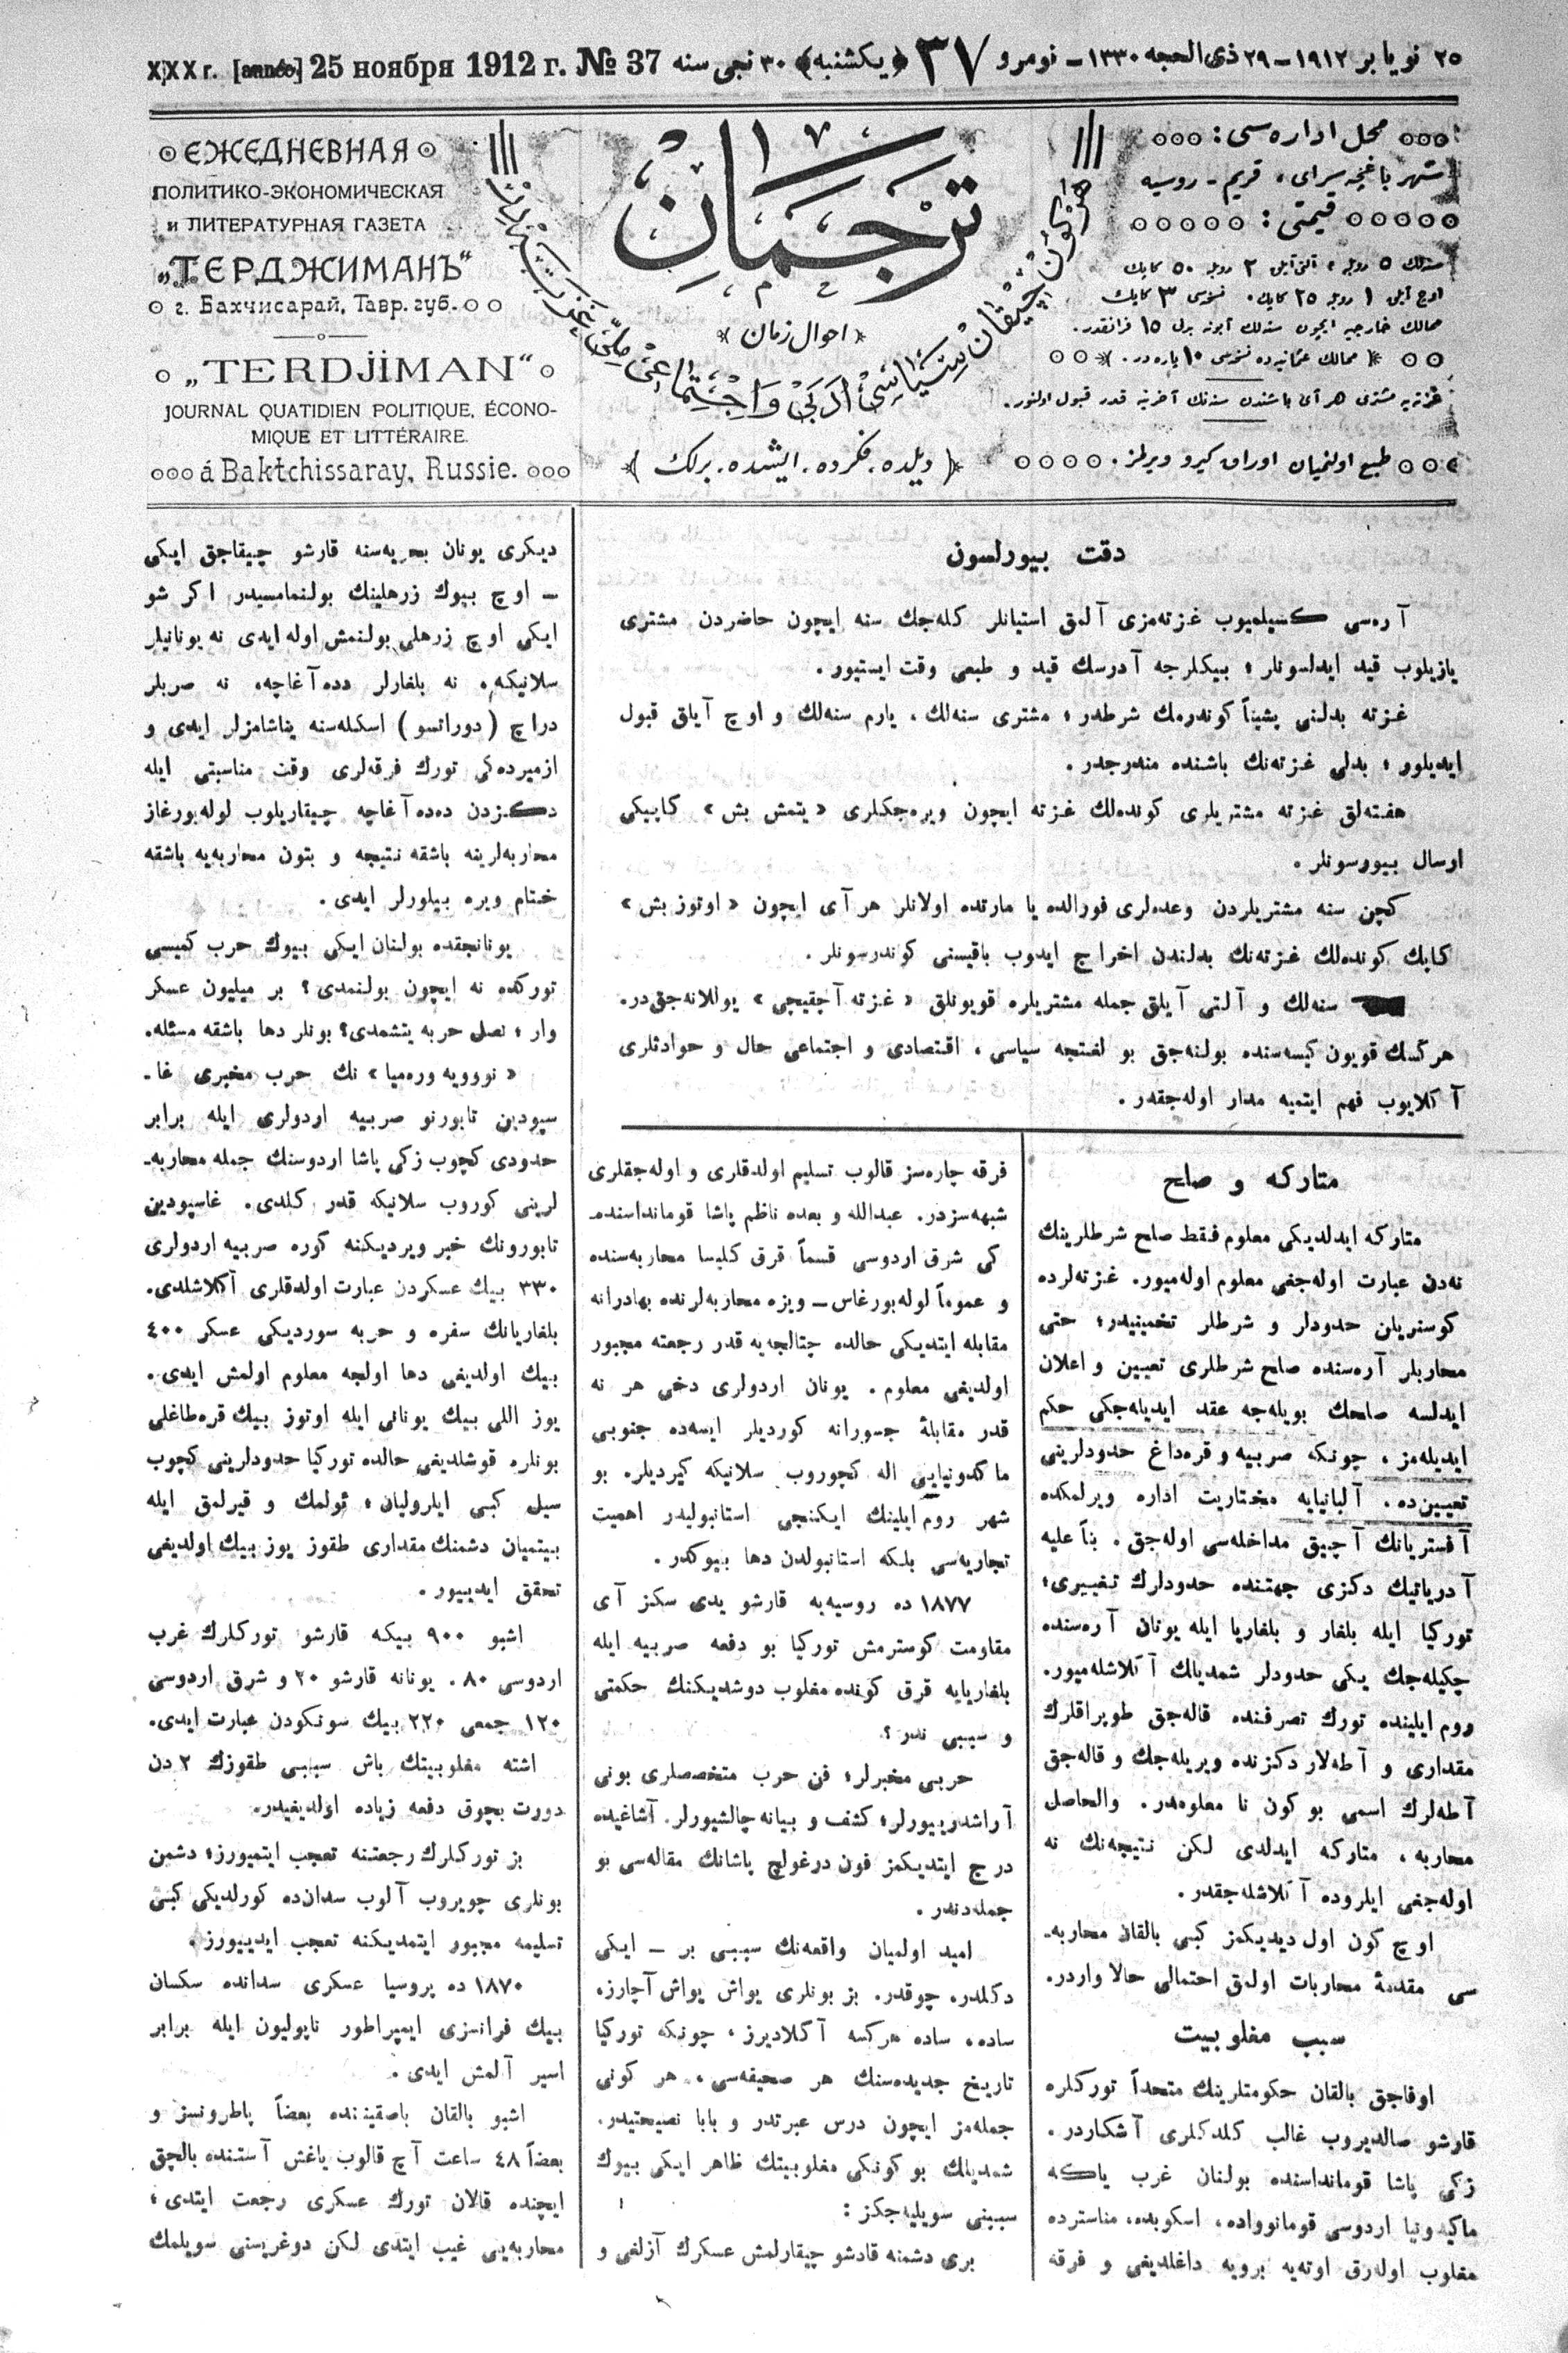 XXX г. [année] 25 ноября 1912 г. № 37
٢٥ نويابر ١٩١٢ – ٢٩ ذى الحجه ١٣٣٠ – نومرو ٣٧ ﴿يكشنبه﴾ ٣٠ نجى سنه
ЕЖЕДНЕВНАЯ
ПОЛИТИКО-ЭКОНОМИЧЕСКАЯ
и ЛИТЕРАТУРНАЯ ГАЗЕТА
„ТЕРДЖИМАНЪ“
г. Бахчисарай, Тавр. губ.
„TERDJIMAN“
JOURNAL QUATIDIEN POLITIQUE, ÉCONO-
MIQUE ET LITTÉRAIRE.
á Baktchissaray, Russie.
ترجمان
﴿ احوال زمان ﴾
هر كون چيقان سياسى، ادبى و اجتماعى ملى غزته در
﴿ ديلده. فكرده. ايشده. برلك ﴾
محل اداره سى:
شهر باغچه سراى، قريم - روسيه
قيمتى:
سنه لك ٥ روبله ؛ آلتى آيلق ٢ روبله ٥٠ كاپك
اوچ آيلق ١ روبله ٢٥ كاپك. نسخه سى ٣ كاپك
ممالك خارجيه ايچون سنه لك آبونه بدلى ١٥ فرانقدر.
﴿ ممالك عثمانيه ده نسخه سى ١٠ پاره در. ﴾
غزته يه مشترى هر آى باشندن سنه نك آخرينه قدر قبول اولنور.
طبع اولنميان اوراق كيرو ويرلمز.
دقت بيورلسون
آره سى كسيلميوب غزته مزى آلمق استيانلر كله جك سنه ايچون حاضردن مشترى
يازيلوب قيد ايدلسونلر ؛ بيكلرجه آدرسك قيد و طبعى وقت ايستيور.
غزته بدلنى پشيناً كوندرمك شرطدر ؛ مشترى سنه لك، يارم سنه لك و اوچ آيلق قبول
ايديلور ؛ بدلى غزته نك باشنده مندرجدر.
هفته لق غزته مشتريلرى كونده لك غزته ايچون ويره جكلرى «يتمش بش» كاپيكى
ارسال بيورسونلر.
كچن سنه مشتريلردن وعده لرى فورالده يا مارتده اولانلر هر آى ايچون «اوتوز بش»
كاپك كونده لك غزته نك بدلندن اخراج ايدوب باقيسنى كوندرسونلر.
سنه لك و آلتى آيلق جمله مشتريلره قويونلق «غزته آچقيجى» يوللانه جق در.
هركسك قويون كيسه سنده بولنه جق بو لغتجه سياسى، اقتصادى و اجتماعى حال و حوادثلرى
آڭلايوب فهم ايتميه مدار اوله جقدر.
متاركه و صلح
متاركه ايدلديكى معلوم فقط صلح شرطلرينك
نه دن عبارت اوله جغى معلوم اوله ميور. غزته لرده
كوستريلن حدودلر و شرطلر تخمينيدر؛ حتى
محاربلر آره سنده صلح شرطلرى تعيين و اعلان
ايدلسه صلحك بويله جه عقد ايديله جكى حكم
ايديله مز. چونكه صربيه و قره داغ حدودلرينى
تعيين ده. آلبانيايه مختاريت اداره ويرلمكده
آفستريانك آچيق مداخله سى اوله جق. بناً عليه
آدرياتيك دكزى جهتنده حدودلرك تغييرى؛
توركيا ايله بلغار و بلغاريا ايله يونان آره سنده
چكيله جك يكى حدودلر شمديلك آڭلاشله ميور.
روم ايلينده تورك تصرفنده قاله جق طوپراقلرك
مقدارى و آطه لار دكزنده ويريله جك و قاله جق
آطه لرك اسمى بو كون نا معلومدر. والحاصل
محاربه، متاركه ايدلدى لكن نتيجه نك نه
اوله جغى ايلروده آڭلاشله جقدر.
اوچ كون اول ديديكمز كبى بالقان محاربه-
سى مقدمۀ محاربات اولمق احتمالى حالا واردر.
سبب مغلوبيت
اوفاجق بالقان حكومتلرينك متحداً توركلره
قارشو صالديروب غالب كلدكلرى آشكاردر.
زكى پاشا قومانداسنده بولنان غرب ياكه
ماكيدونيا اردوسى قومانوواده، اسكوبده، مناسترده
مغلوب اوله رق اوته يه برويه داغلديغى و فرقه
فرقه چاره سز قالوب تسليم اولدقلرى و اوله جقلرى
شبهه سزدر. عبدالله و بعده ناظم پاشا قومانداسنده-
كى شرق اردوسى قسماً قرق كليسا محاربه سنده
و عموماً لوله بورغاس – ويزه محاربه لرنده بهادرانه
مقابله ايتديكى حالده چتالجه يه قدر رجعته مجبور
اولديغى معلوم. يونان اردولرى دخى هر نه
قدر مقابلۀ جسورانه كورديلر ايسه ده جنوبى
ماكدونيايى اله كچوروب سلانيكه كيرديلر. بو
شهر روم ايلينك ايكنجى استانبوليدر اهميت
تجاريه سى بلكه استانبولدن دها بيوكدر.
١٨٧٧ ده روسيه يه قارشو يدى سكز آى
مقاومت كوسترمش توركيا بو دفعه صربيه ايله
بلغاريايه قرق كونده مغلوب دوشديكنك حكمتى
و سببى ندر؟
حربى مخبرلر؛ فن حرب متخصصلرى بونى
آراشديريبورلر؛ كشف و بيانه چالشيورلر. آشاغيده
درج ايتديكمز فون درغولچ پاشانك مقاله سى بو
جمله دندر.
اميد اولميان واقعه نك سببى بر – ايكى
دكلدر، چوقدر. بز بونلرى يواش يواش آچارز،
ساده، ساده هركسه آڭلاديرز، چونكه توركيا
تاريخ جديده سنك هر صحيفه سى، هر كونى
جمله مز ايچون درس عبرتدر و بابا نصيحتيدر.
شمديلك بو كونكى مغلوبيتك ظاهر ايكى بيوك
سببنى سويليه جكز:
برى دشمنه قارشو چيقارلمش عسكرك آزلغى و
ديكرى يونان بحريه سنه قارشو چيقاجق ايكى
– اوچ بيوك زرهلينك بولنمامسيدر اكر شو
ايكى اوچ زرهلى بولنمش اوله ايدى نه يونانيلر
سلانيكه، نه بلغارلر دده آغاچه، نه صربلر
دراچ (دوراتسو) اسكله سنه يناشامزلر ايدى و
ازميرده كى تورك فرقه لرى وقت مناسبتى ايله
دكزدن دده آغاچه چيقاريلوب لوله بورغاز
محاربه لرينه باشقه نتيجه و بتون محاربه يه باشقه
ختام ويره بيلورلر ايدى.
يونانجقده بولنان ايكى بيوك حرب كميسى
توركده نه ايچون بولنمدى؟ بر ميليون عسكر
وار ؛ نصل حربه يتشمدى؟ بونلر دها باشقه مسئله.
«نوويه وره ميا» نك حرب مخبرى غا-
سپودين تابورنو صربيه اردولرى ايله برابر
حدودى كچوب زكى پاشا اردوسنك جمله محاربه-
لرينى كوروب سلانيكه قدر كلدى. غاسپودين
تابورونك خبر ويرديكنه كوره صربيه اردولرى
٣٣٠ بيك عسكردن عبارت اولدقلرى آڭلاشلدى.
بلغاريانك سفره و حربه سورديكى عسكر ٤٠٠
بيك اولديغى دها اولجه معلوم اولمش ايدى.
يوز اللى بيك يونانى ايله اوتوز بيك قره طاغلى
بونلره قوشلديغى حالده توركيا حدودلرينى كچوب
سيل كبى ايلروليان ؛ ئولمك و قيرلمق ايله
بيتميان دشمنك مقدارى طقوز يوز بيك اولديغى
تحقق ايدييور.
اشبو ٩٠٠ بيكه قارشو توركلرك غرب
اردوسى ٨٠. يونانه قارشو ٢٠ و شرق اردوسى
١٢٠ جمعى ٢٢٠ بيك سونكودن عبارت ايدى.
اشته مغلوبيتك باش سببى طقوزك ٢ دن
دورت بچوق دفعه زياده اولديغيدر.
بز توركلرك رجعتنه تعجب ايتميورز؛ دشمن
بونلرى چويروب آلوب سدان ده كورلديكى كبى
تسليمه مجبور ايتمديكنه تعجب ايدييورز.
١٨٧٠ ده پروسيا عسكرى سدانده سكسان
بيك فرانسزى ايمپراطور ناپوليون ايله برابر
اسير آلمش ايدى.
اشبو بالقان باصقيننده بعضاً پاطرونسز و
بعضاً ٤٨ ساعت آچ قالوب ياغش آستنده بالچق
ايچنده قالان تورك عسكرى رجعت ايتدى ؛
محاربه يى غيب ايتدى لكن دوغريسنى سويلمك